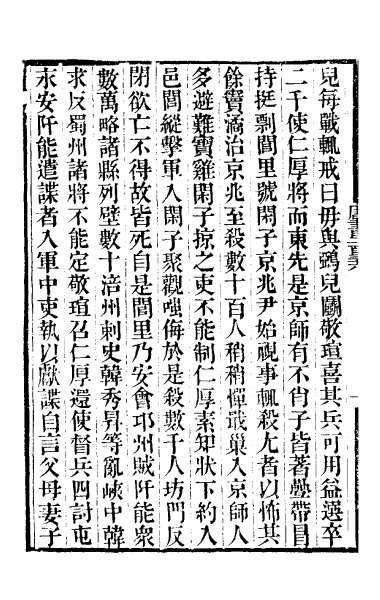 兒每戰輒戒曰毋與鵶兒鬭敬瑄喜其兵可用益選卒
二千使仁厚將而東先是京師有不肖子皆著疊帶冒
持挺剽閭里號閑子京兆尹始視事輒殺尤者以怖其
餘竇潏治京兆至殺數十百人稍稍憚戢巢入京師人
多避難寶雞閑子掠之吏不能制仁厚素知狀下約入
邑閭縱擊軍入閑子聚觀嗤侮於是殺數千人坊門反
閉欲亡不得故皆死自是閭里乃安會邛州賊阡能衆
數萬略諸縣列壁數十涪州刺史韓秀昇等亂峽中韓
求反蜀州諸將不能定敬瑄召仁厚還使督兵四討屯
永安阡能遣諜者入軍中吏執以獻諜自言父母妻子